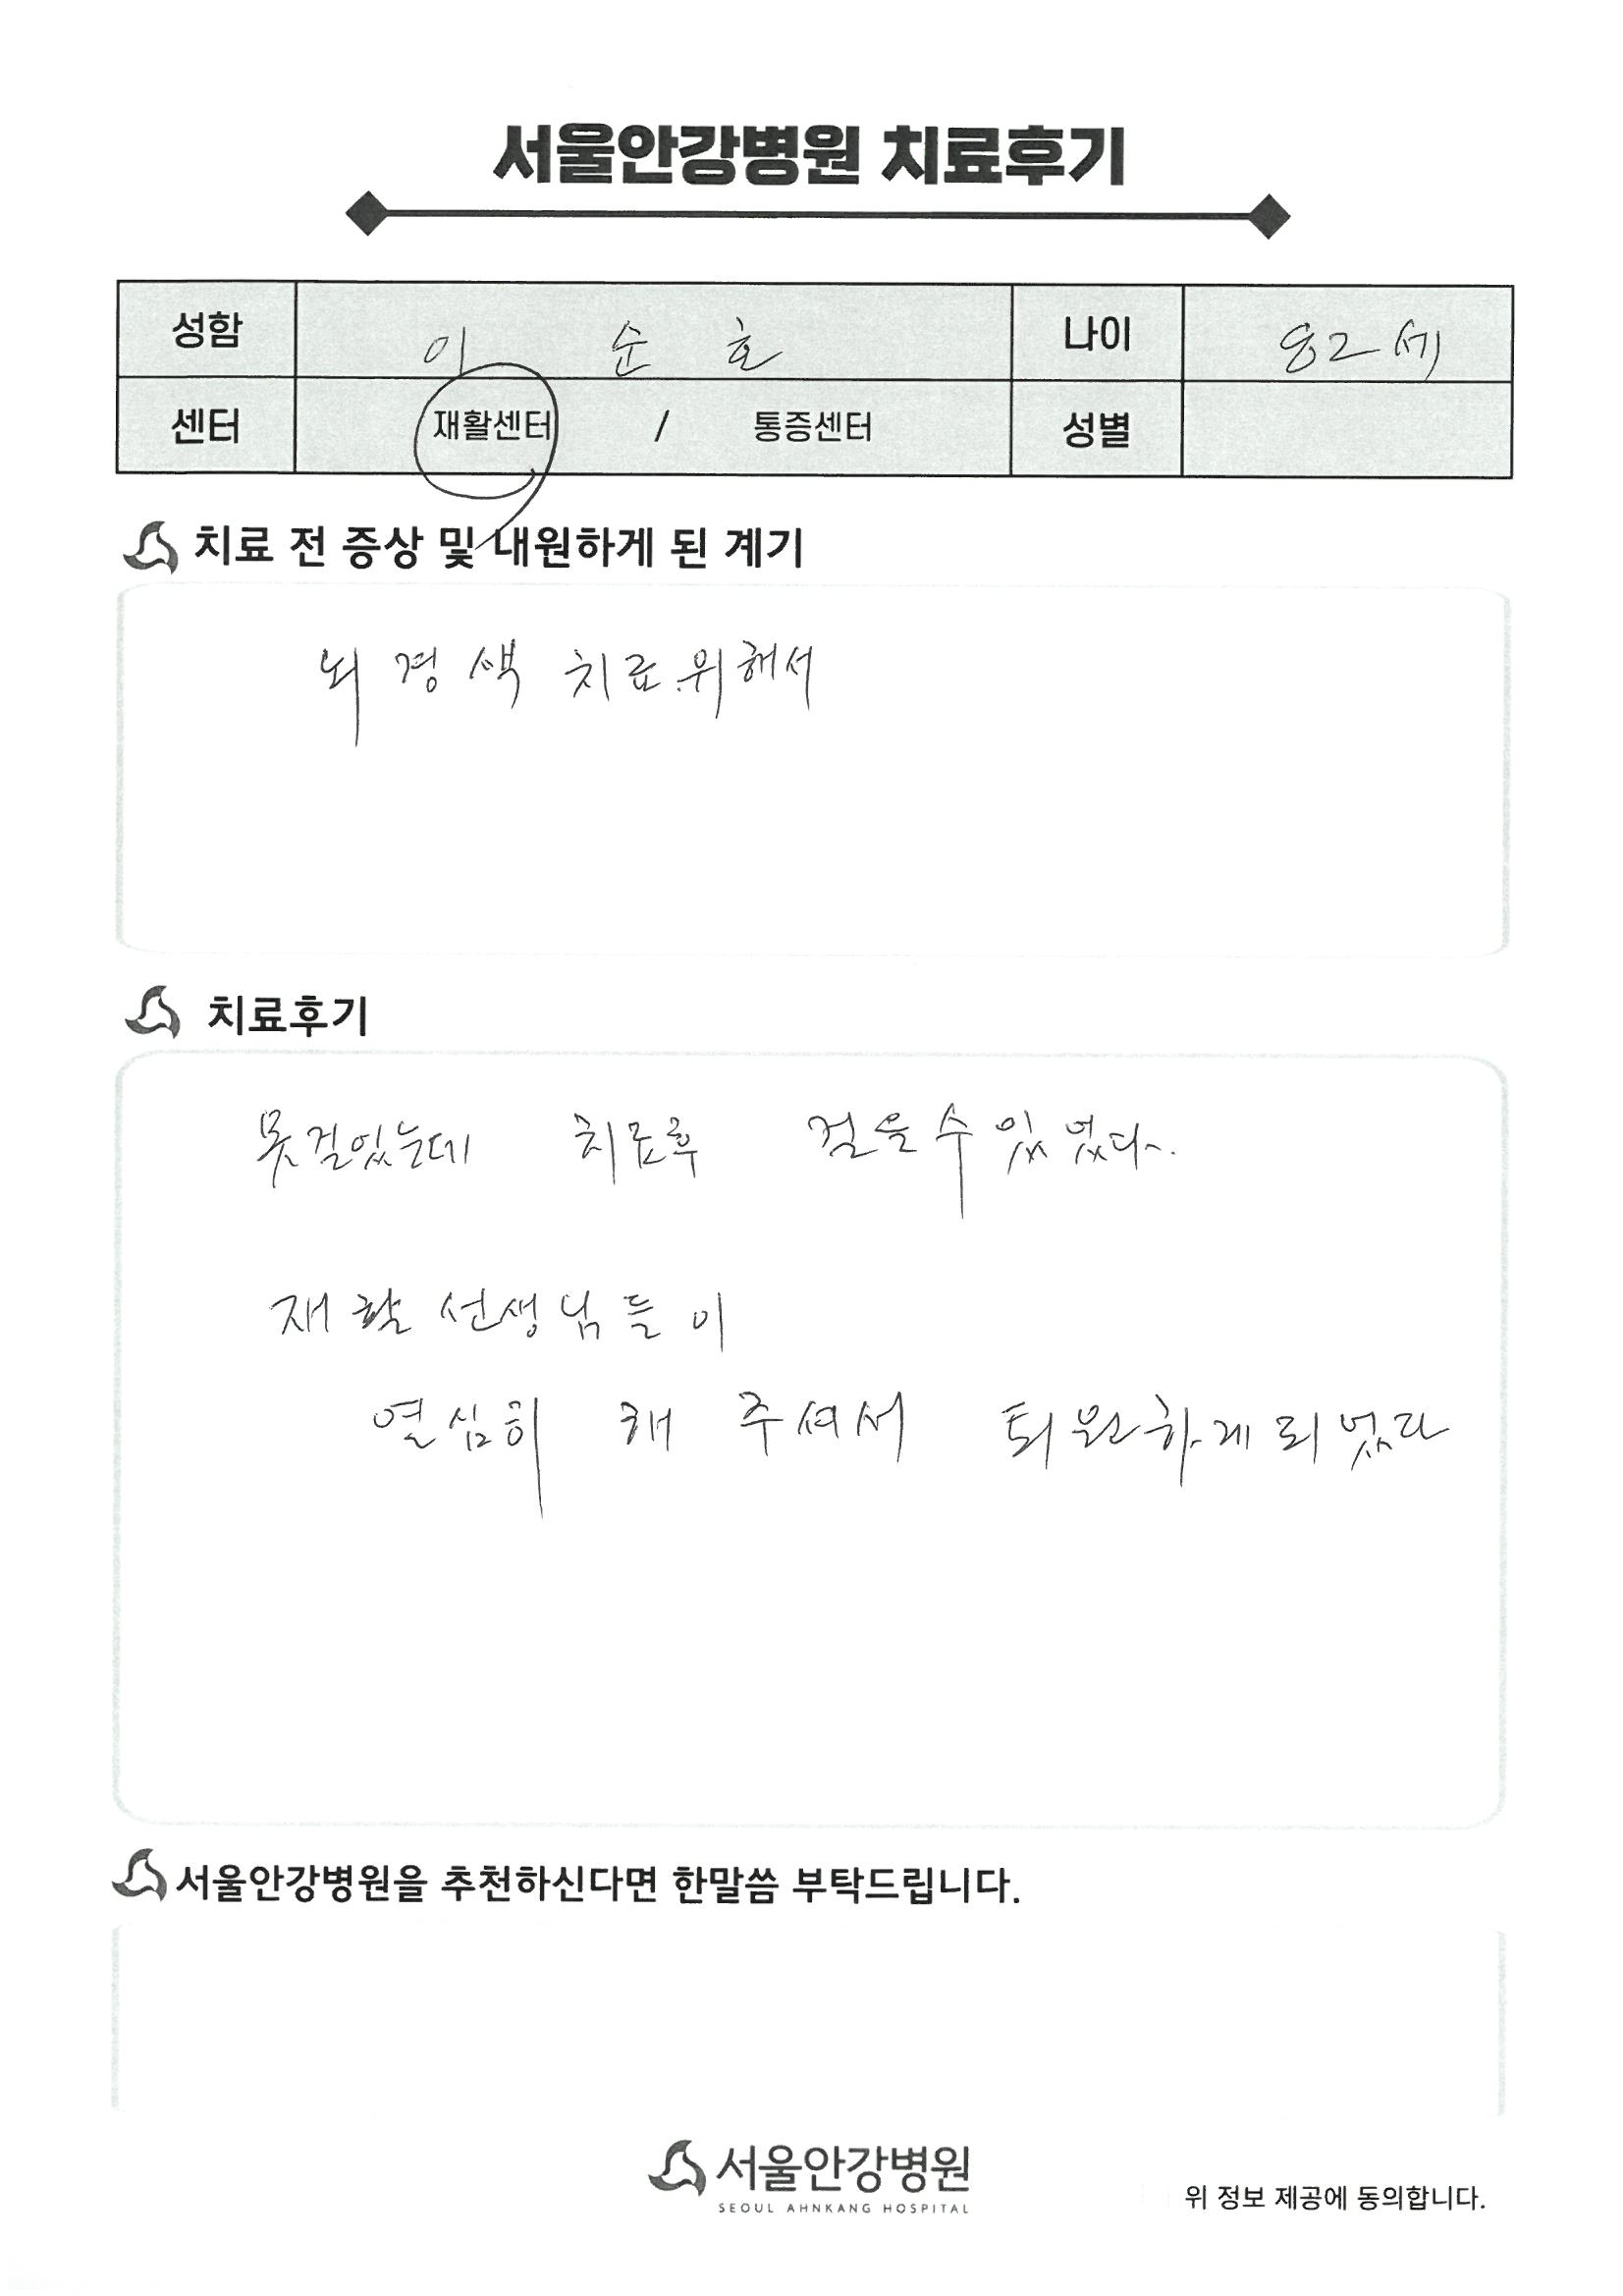 서울안강병원 치료후기
성함 이 순 호 나이 82세
센터 재활센터 / 통증센터 성별
치료 전 증상 및 내원하게 된 계기
뇌경색 치료 위해서
치료후기
못걸었는데 치료후 걸을수있었다.
재활선생님들이
열심히 해 주셔서 퇴원하게되었다
서울안강병원을 추천하신다면 한말씀 부탁드립니다.
서울안강병원
SEOUL AHNKANG HOSPITAL
위 정보 제공에 동의합니다.